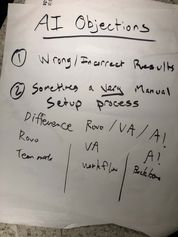 AI Objections
① Wrong/Incorrect Results
② Sometimes a very Manual
Setup process
Difference Rovo / VA / A!
Rovo VA A!
Teammate Workflow Backbone